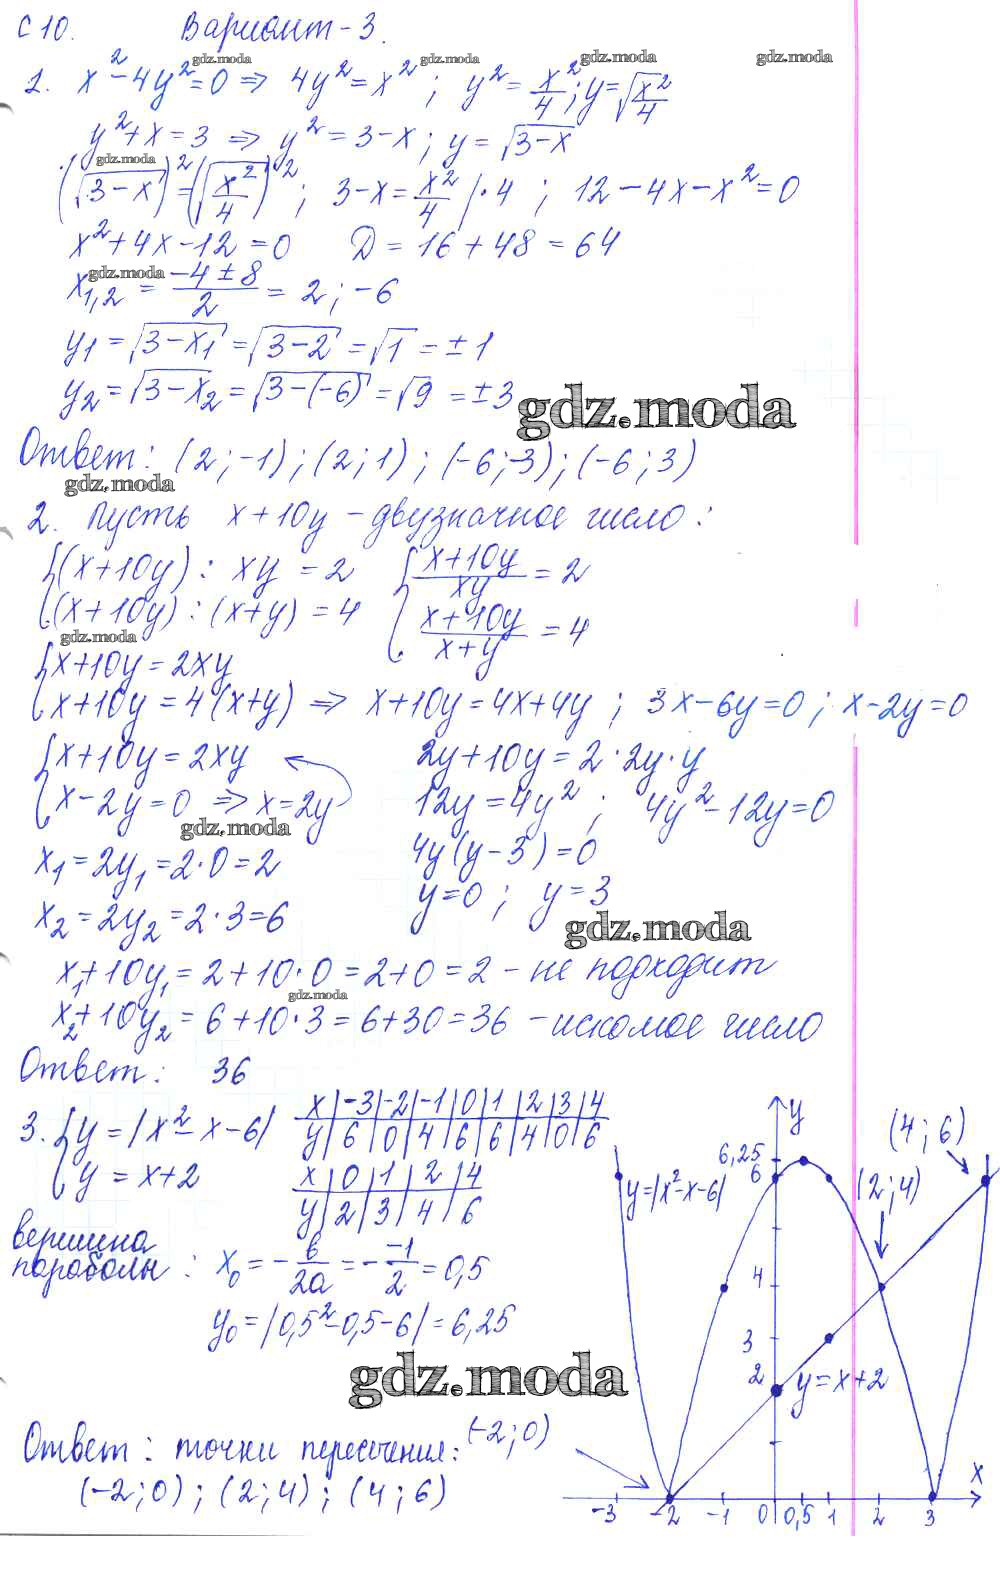 С 10. Вариант-3.
gdz.moda gdz.moda gdz.moda gdz.moda
1. x²-4y²=0 ⇒ 4y²=x² ; y²=x²/4 ; y=√(x²/4)
y²+x=3 ⇒ y²=3-x ; y=√(3-x)
gdz.moda
(√(3-x))²=(√(x²/4))² ; 3-x=x²/4 |·4 ; 12-4x-x²=0
x²+4x-12=0 D=16+48=64
gdz.moda
x1,2 = (-4±8)/2 = 2 ; -6
y1=√(3-x1)=√(3-2)=√1=±1
y2=√(3-x2)=√(3-(-6))=√9=±3
gdz.moda
Ответ: (2;-1);(2;1);(-6;-3);(-6;3)
gdz.moda
2. Пусть x+10y-двузначное число:
{(x+10y) : xy = 2 {(x+10y)/xy = 2
(x+10y) : (x+y) = 4 (x+10y)/(x+y) = 4
gdz.moda
{x+10y=2xy
x+10y=4(x+y) ⇒ x+10y=4x+4y ; 3x-6y=0 ; x-2y=0
{x+10y=2xy 2y+10y=2·2y·y
x-2y=0 ⇒ x=2y 12y=4y² ; 4y²-12y=0
gdz.moda
x1=2y1=2·0=2 4y(y-3)=0
y=0 ; y=3
x2=2y2=2·3=6
gdz.moda
x1+10y1=2+10·0=2+0=2 - не подходит
gdz.moda
x2+10y2=6+10·3=6+30=36 - искомое число
Ответ: 36
3. {y=|x²-x-6| x -3 -2 -1 0 1 2 3 4
y 6 0 4 6 6 4 0 6
y = x+2 x 0 1 2 4
y 2 3 4 6
вершина
параболы : x0=-b/2a=-(-1)/2=0,5
y0=|0,5²-0,5-6|=6,25
gdz.moda
Ответ: точки пересечения:
(-2;0) ; (2;4) ; (4;6)
y
(4;6)
6,25
6
y=|x²-x-6|
(2;4)
4
3
2
y=x+2
(-2;0)
x
-3 -2 -1 0 0,5 1 2 3